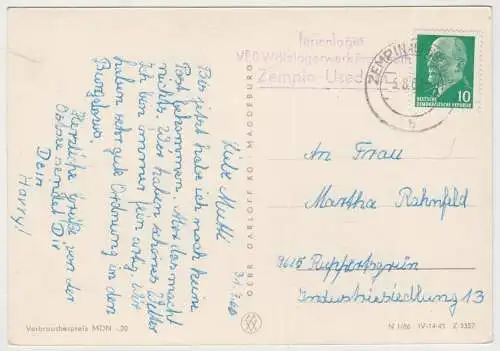 Ferienlager
VEB Wälzlagerwerk
Zempin Used
ZEMPIN
10
DEUTSCHE
DEMOKRATISCHE REPUBLIK
b
Liebe Mutti
Bis jetzt habe ich noch keine
Post bekommen. Aber das macht
nichts. Wir haben schönes Wetter
Ich bin immer Wir
haben sehr gute Ordnung in den
Bunglows.
Herzliche Grüße von der
Ostsee sendet Dir
Dein
Harry!
GEBR. GARLOFF KG · MAGDEBURG
An Frau
Martha Rahnfeld
9615 Ruppertsgrün
Industriesiedlung 13
Verbraucherpreis MDN -,20
N 1/66 IV-14-45 Z 3352